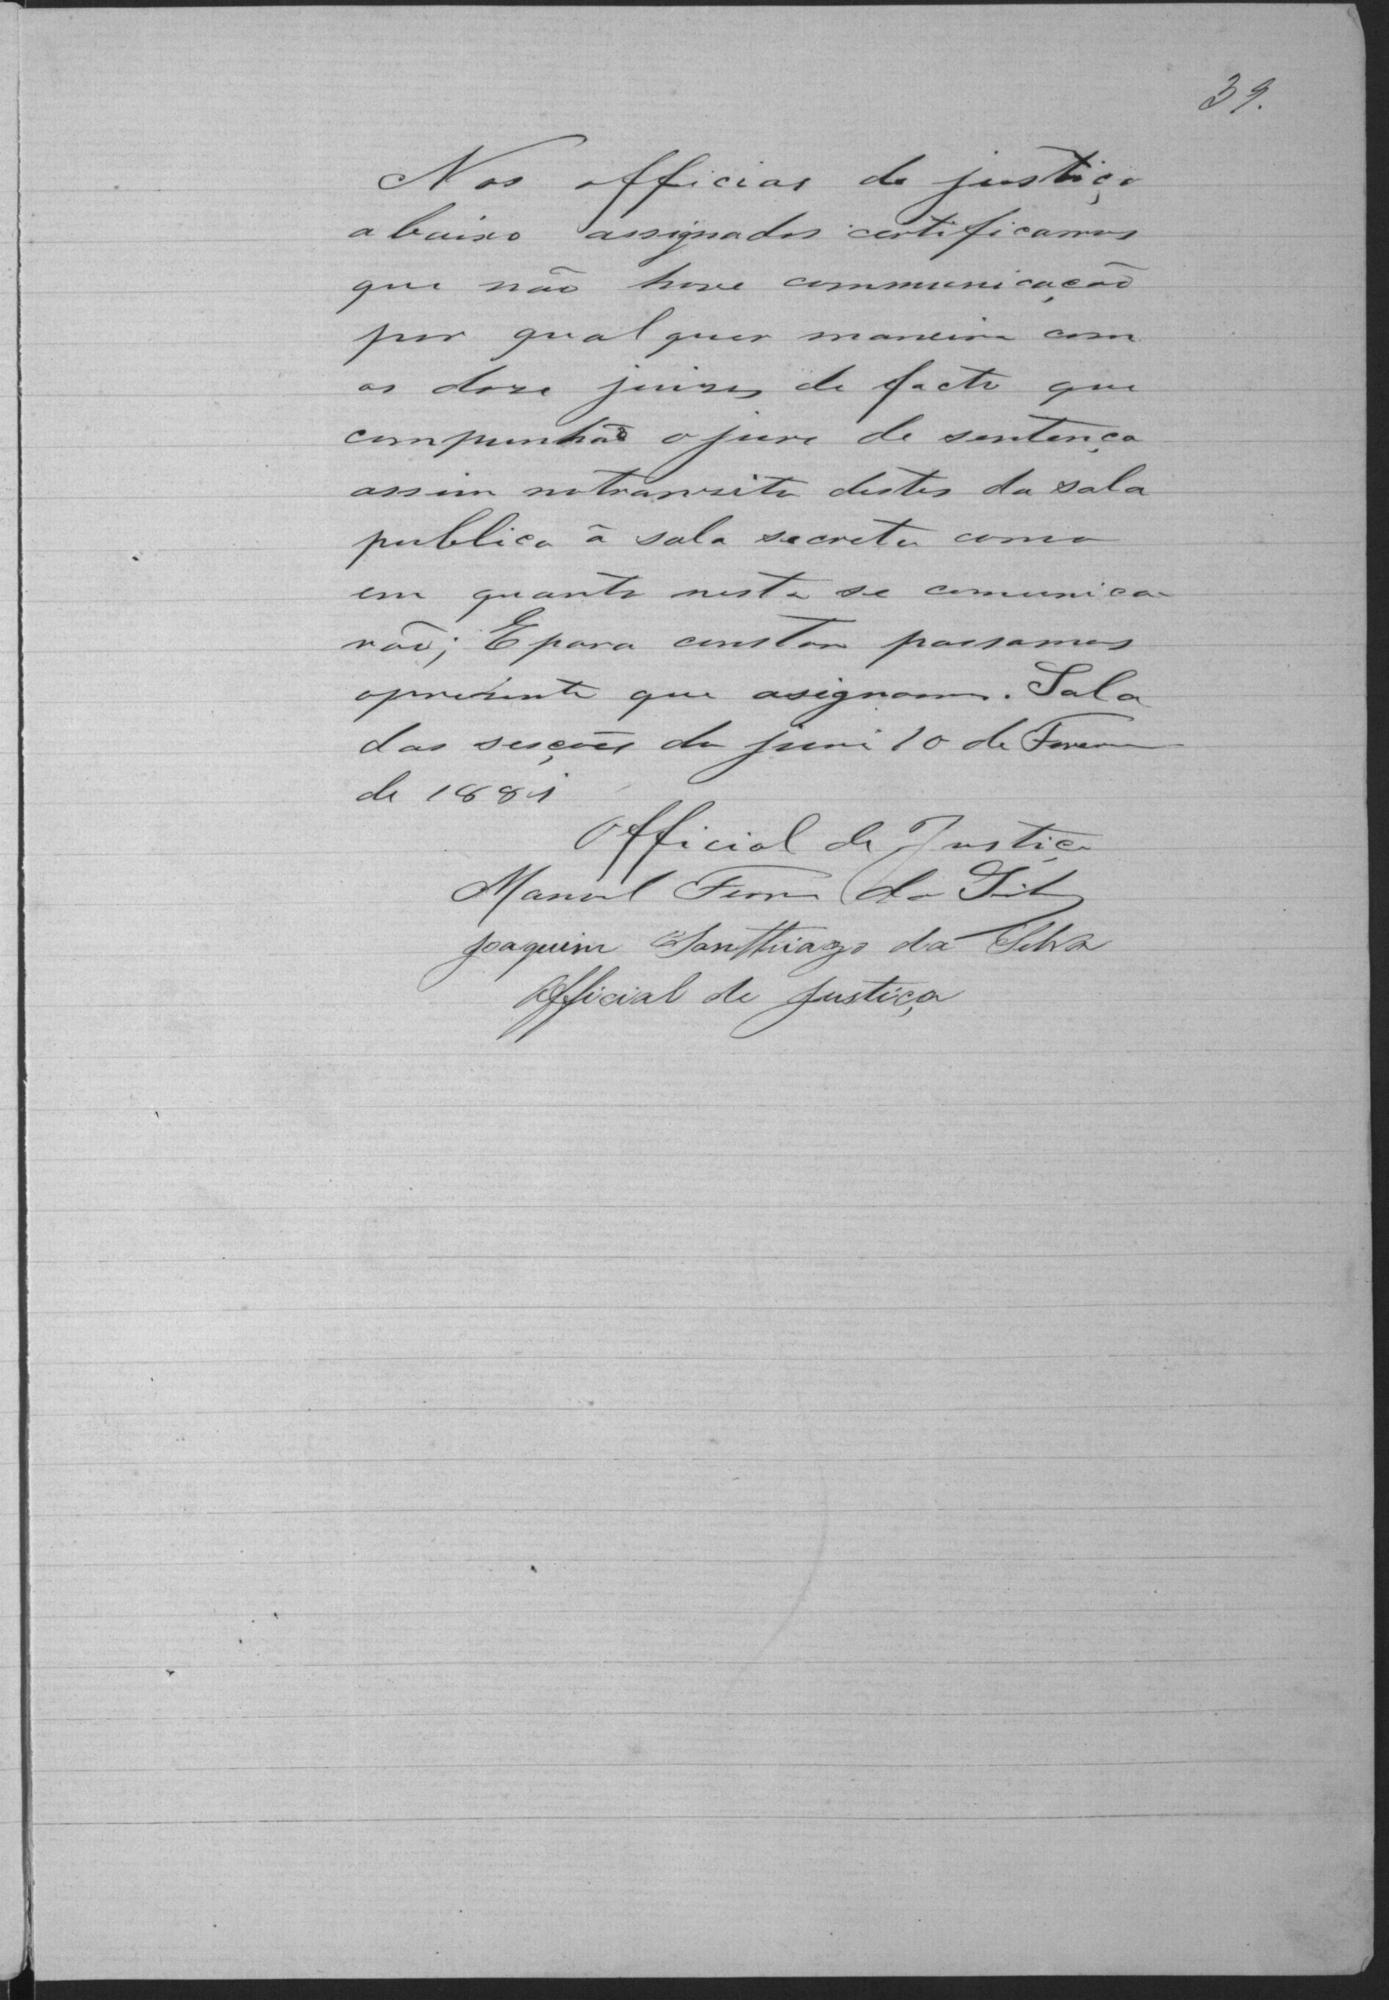 39.
Nos officias de justiça
abaixo assignados certificamos
que não hove communicação
por qualquer maneira com
os doze juizes de facto que
compunhão o jure de sentença
assim no tranzito destes da sala
publica á sala secreta como
em quanto nesta se comunica
rão; E para constar passamos
apresente que asignamos. Sala
das sesções do jure 10 de Fevereiro
de 1881
Official de Justiça
Manoel Ferra da Silva
Joaquim Santhiago da Silva
Official de Justiça